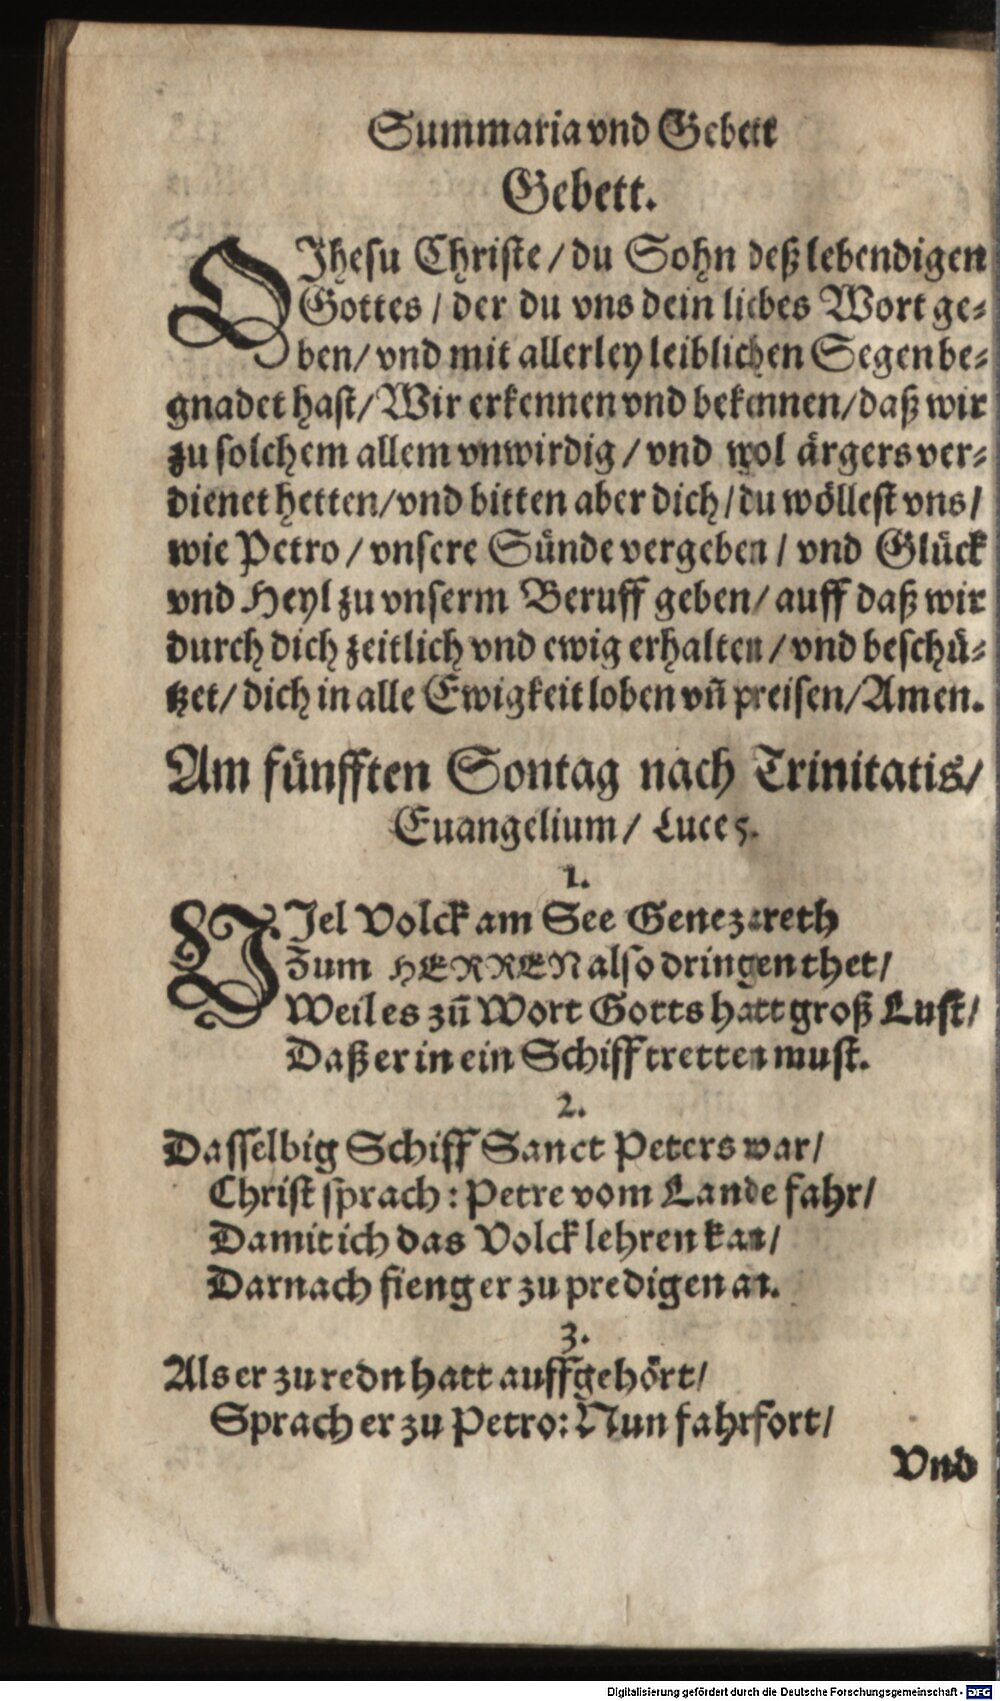 Summaria vnd Gebett
Gebett.
O Jhesu Christe / du Sohn deß lebendigen
Gottes / der du vns dein liebes Wort ge⸗
ben / vnd mit allerley leiblichen Segen be⸗
gnadet hast / Wir erkennen vnd bekennen / daß wir
zu solchem allem vnwirdig / vnd wol ärgers ver⸗
dienet hetten / vnd bitten aber dich / du wöllest vns /
wie Petro / vnsere Sünde vergeben / vnd Glück
vnd Heyl zu vnserm Beruff geben / auff daß wir
durch dich zeitlich vnd ewig erhalten / vnd beschü⸗
tzet / dich in alle Ewigkeit loben vn̄ preisen / Amen.
Am fünfften Sontag nach Trinitatis /
Euangelium / Luce 5.
1.
VJel Volck am See Genezareth
Zum HERREN also dringen thet /
Weil es zū Wort Gotts hatt groß Lust /
Daß er in ein Schiff tretten must.
2.
Dasselbig Schiff Sanct Peters war /
Christ sprach : Petre vom Lande fahr /
Damit ich das Volck lehren kan /
Darnach fieng er zu predigen an.
3.
Als er zu redn hatt auffgehört /
Sprach er zu Petro : Nun fahr fort /
Vnd
Digitalisierung gefördert durch die Deutsche Forschungsgemeinschaft - DFG